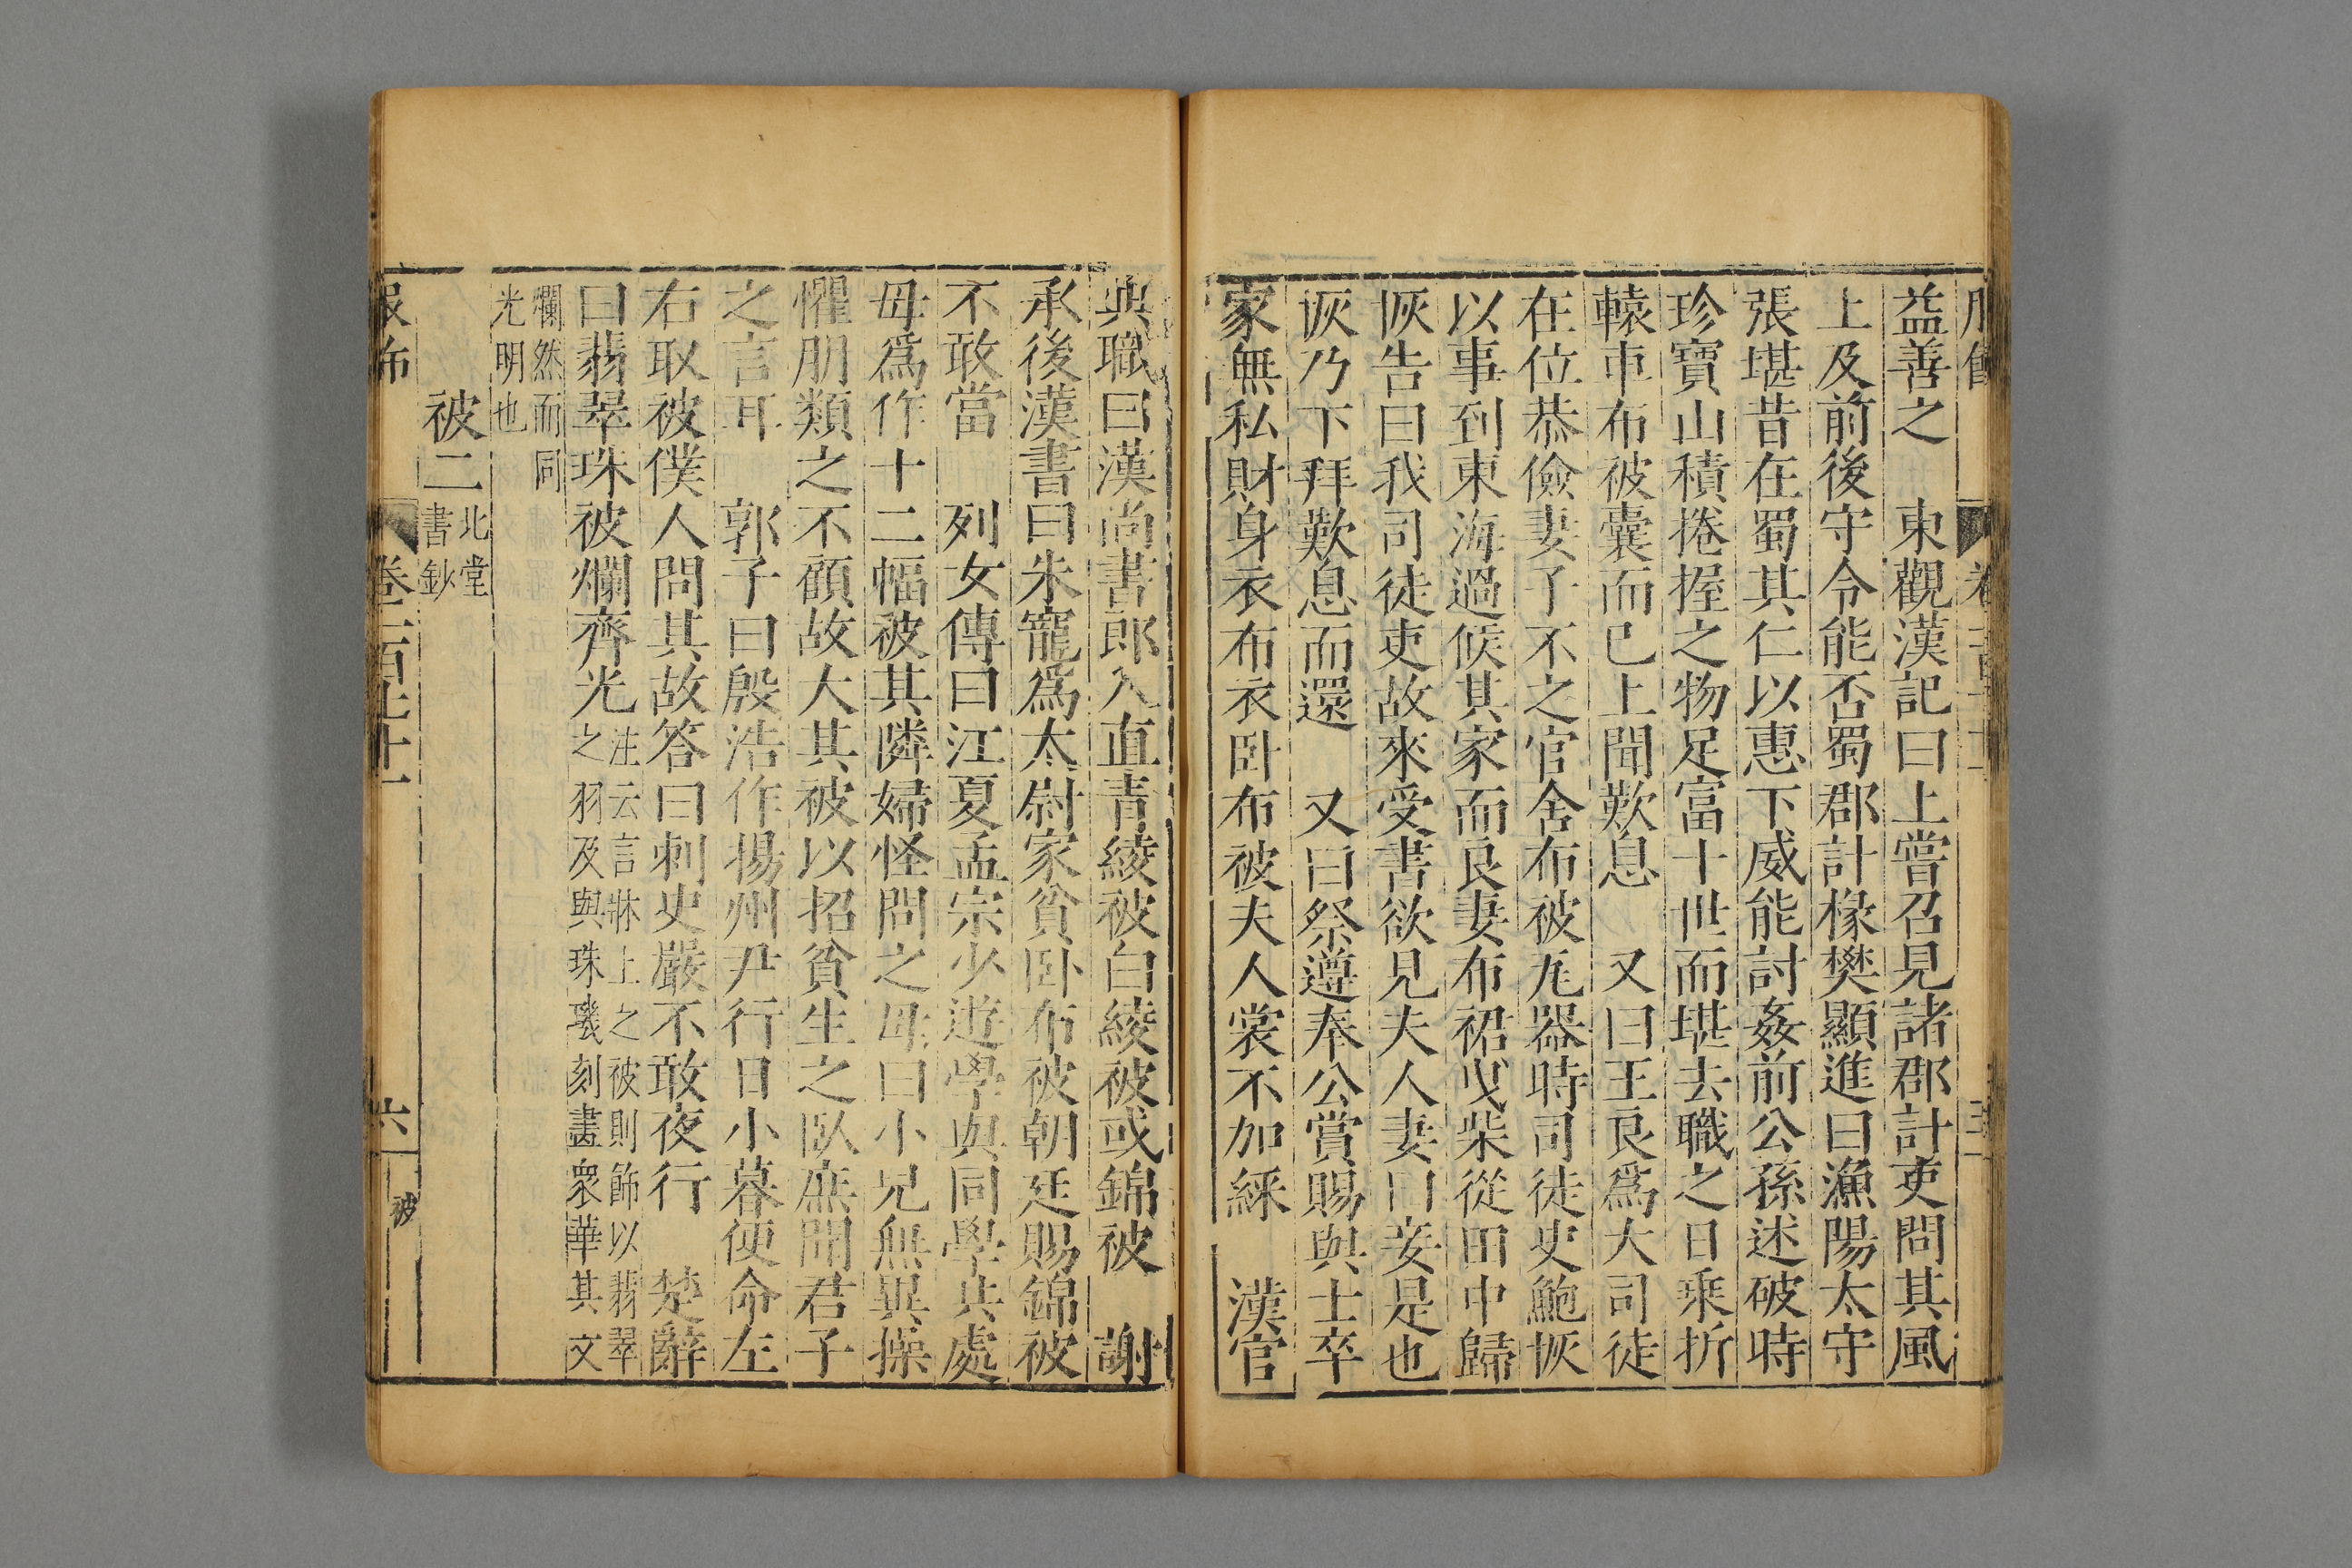 益善之　東觀漢記曰上嘗召見諸郡計吏問其風
上及前後守令能否蜀郡計掾樊顯進曰漁陽太守
張堪昔在蜀其仁以惠下威能討姦前公孫述破時
珍寶山積捲握之物足富十世而堪去職之日乗折
轅車布被囊而已上聞歎息　又曰王良爲大司徒
在位恭儉妻子不之官舍布被瓦器時司徒史鮑恢
以事到東海過候其家而良妻布裙曳柴從田中歸
恢告曰我司徒吏故來受書欲見夫人妻曰妾是也
恢乃下拜歎息而還　又曰祭遵奉公賞賜與士卒
家無私財身衣布衣卧布被夫人裳不加綵　漢官
典職曰漢尚書郎入直青綾被白綾被或錦被　謝
承後漢書曰朱寵爲太尉家貧卧布被朝廷賜錦被
不敢當　列女傳曰江夏孟宗少遊學與同學共處
母爲作十二幅被其隣婦怪問之母曰小兒無異操
懼朋類之不顧故大其被以招貧生之臥庶聞君子
之言耳　郭子曰殷浩作揚州尹行日小暮便命左
右取被僕人問其故答曰刺史嚴不敢夜行　楚辭
曰翡翠珠被爛齊光注云言牀上之被則飾以翡翠
之羽及與珠璣刻畫衆華其文
爛然而同
光明也
被二北堂
書鈔
卷三百七十一
六
被